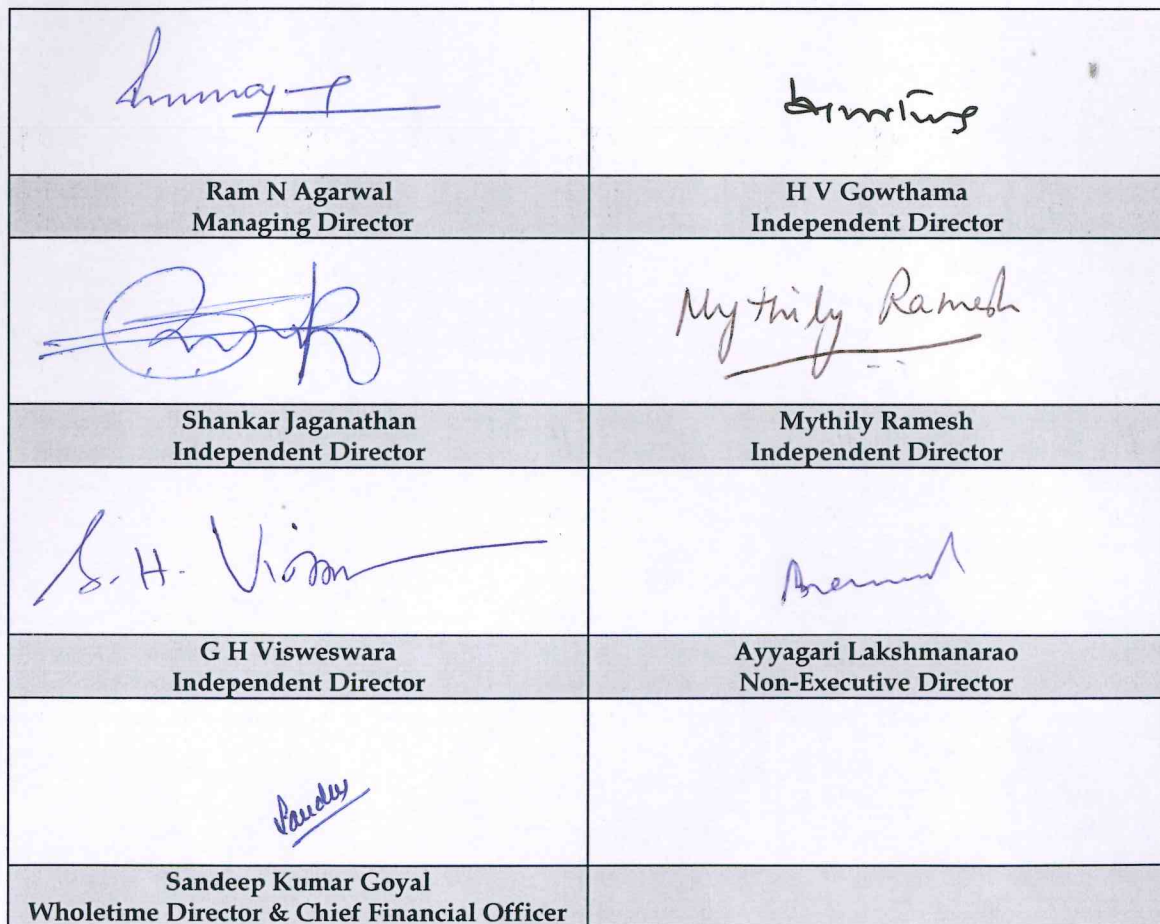 Ram N Agarwal
Managing Director
H V Gowthama
Independent Director
Mythily Ramesh
Shankar Jaganathan
Independent Director
Mythily Ramesh
Independent Director
G H Visweswara
Independent Director
Ayyagari Lakshmanarao
Non-Executive Director
Sandeep Kumar Goyal
Wholetime Director & Chief Financial Officer